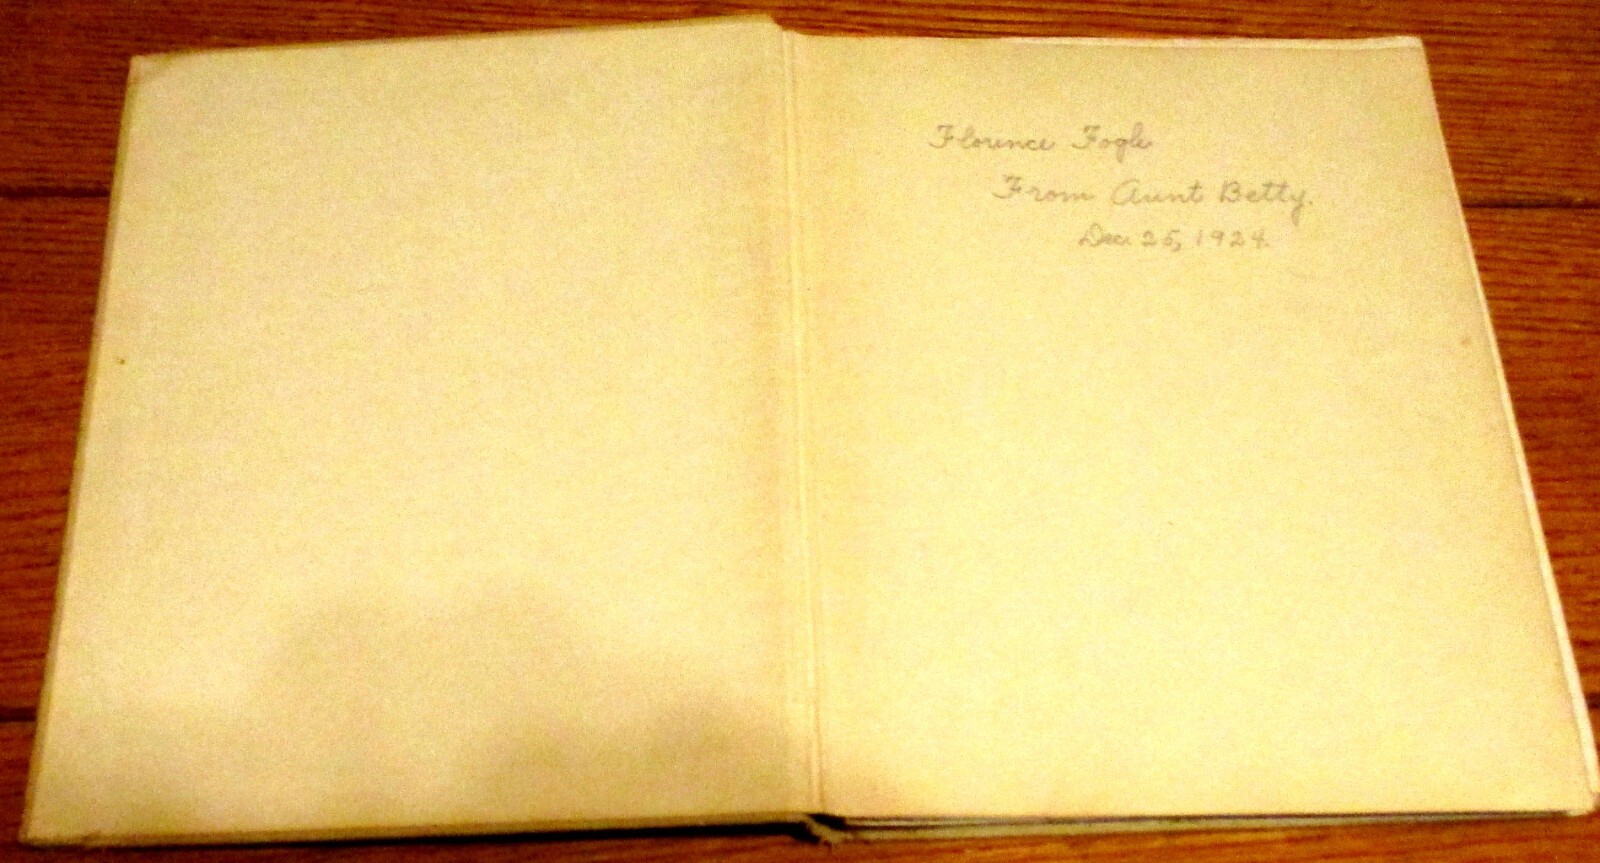 Florence Fogle
From Aunt Betty.
Dec. 25, 1924.